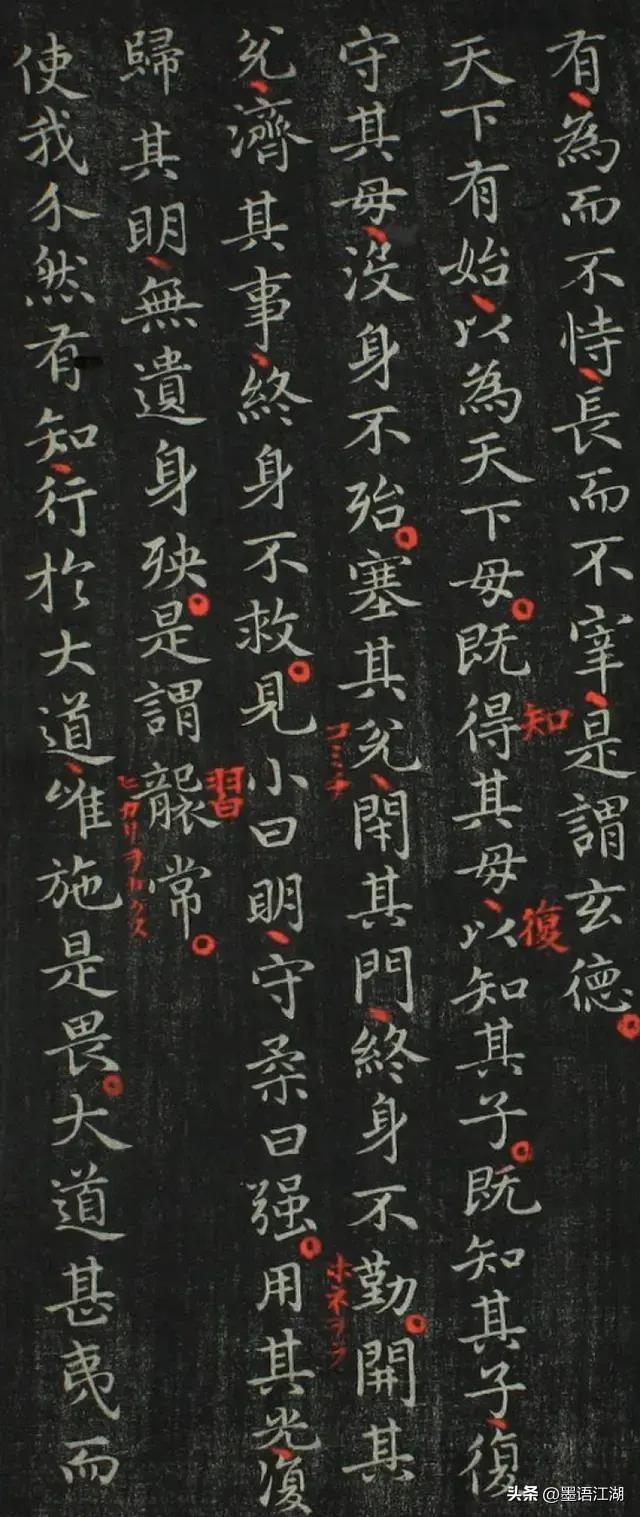 有、為而不恃、長而不宰、是謂玄德。
知
復
天下有始、以為天下母。既得其母、以知其子。既知其子、復
守其母、沒身不殆。塞其兌、閇其門、終身不勤。開其
コミチ
ホネヲラ
兌、濟其事、終身不救。見小曰明、守柔曰强。用其光、復
習
歸其明、無遺身殃。是謂襲常。
ヒカリヲカクス
使我介然有知、行於大道、唯施是畏。大道甚夷而
头条 @墨语江湖